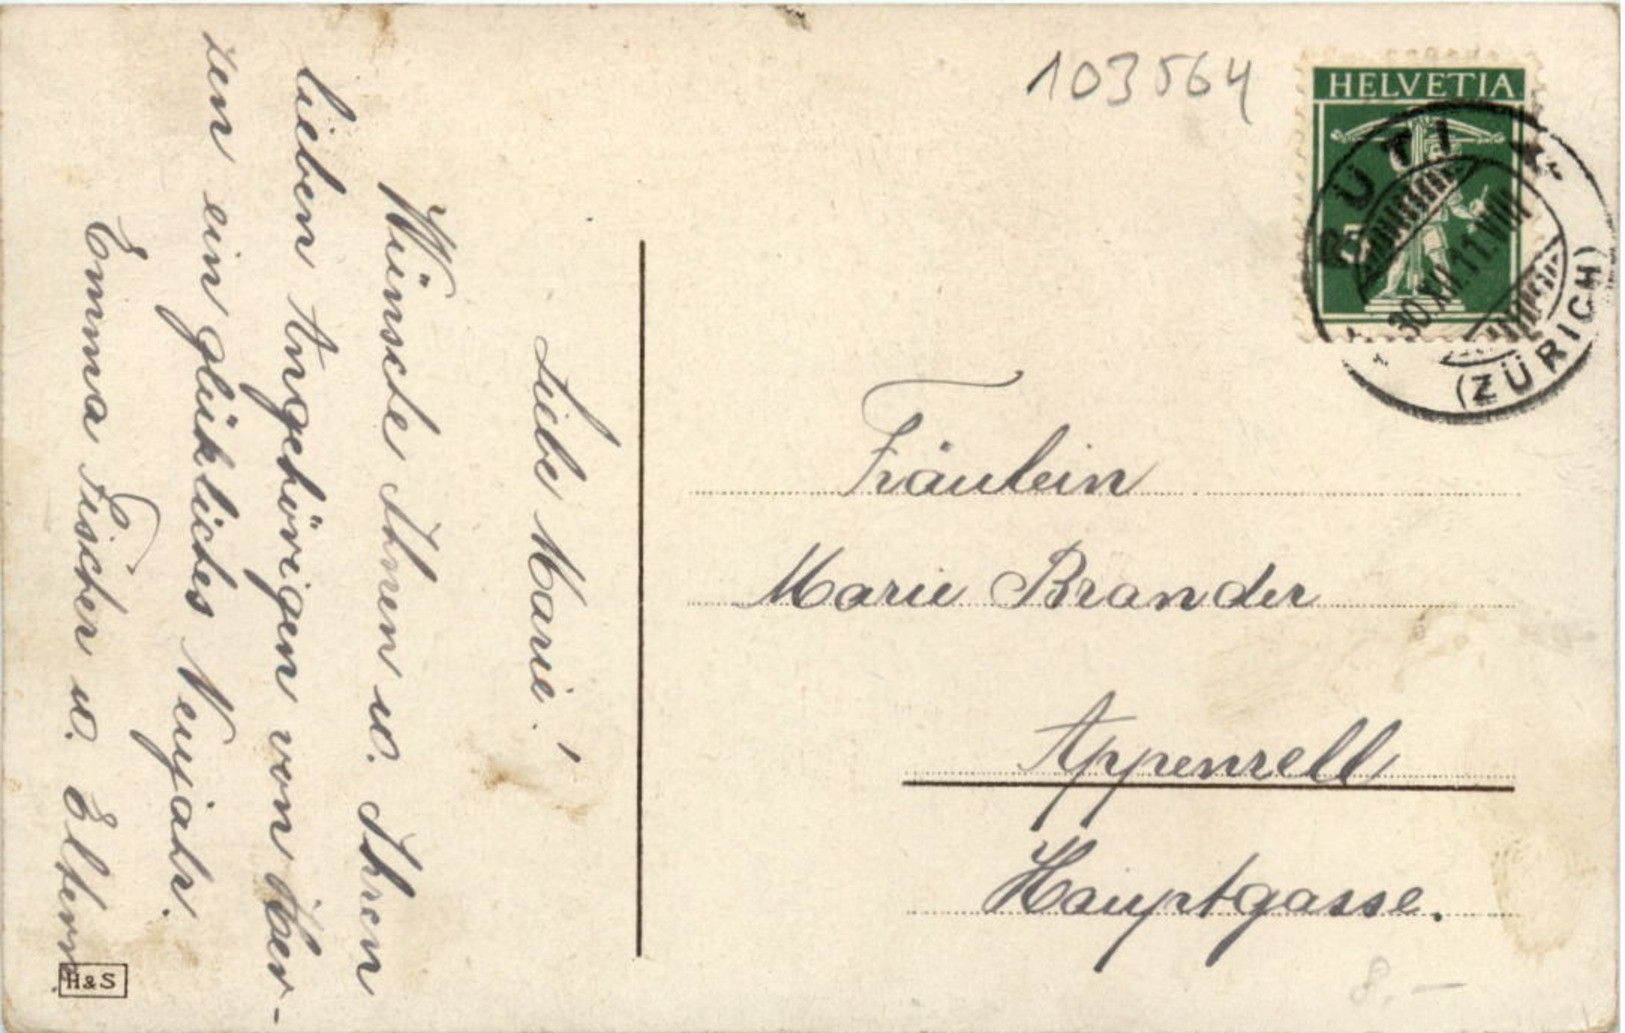 Liebe Marie!
Wünsche Ihnen u. Ihren
lieben Angehörigen von Her-
zen ein glükliches Neujahr.
Emma Fischer u. Eltern.
H&S
103564
HELVETIA
5
RÜTI
30.XII.11.VIII
(ZÜRICH)
Fräulein
Marie Brander
Appenzell
Hauptgasse.
8.–